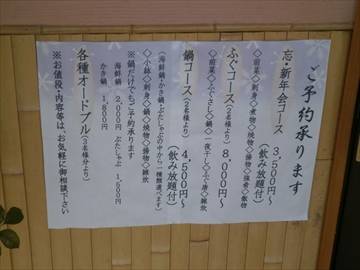 ご予約承ります
忘・新年会コース 3,500円～
(飲み放題付)
◇前菜◇刺身◇煮物◇焼物◇揚物◇強肴◇飯物
ふぐコース(2名様より) 8,000円～
◇前菜◇ふぐさし◇鍋◇一夜干し◇ふぐ唐◇雑炊
鍋コース(2名様より) 4,500円～
(飲み放題付)
(海鮮鍋・かき鍋・ぶたしゃぶの中から一種類選べます)
◇小鉢◇刺身◇鍋◇焼物◇揚物◇雑炊
※鍋だけでもご予約承ります
海鮮鍋 2,000円 ぶたしゃぶ 1,500円
かき鍋 1,800円
各種オードブル(3名様分より)
※お値段・内容等は、お気軽に御相談下さい